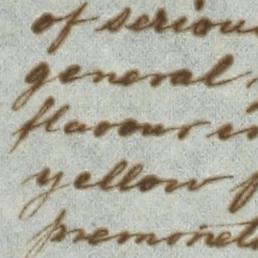 of seriou
general
flavour in
yellow f
premonet